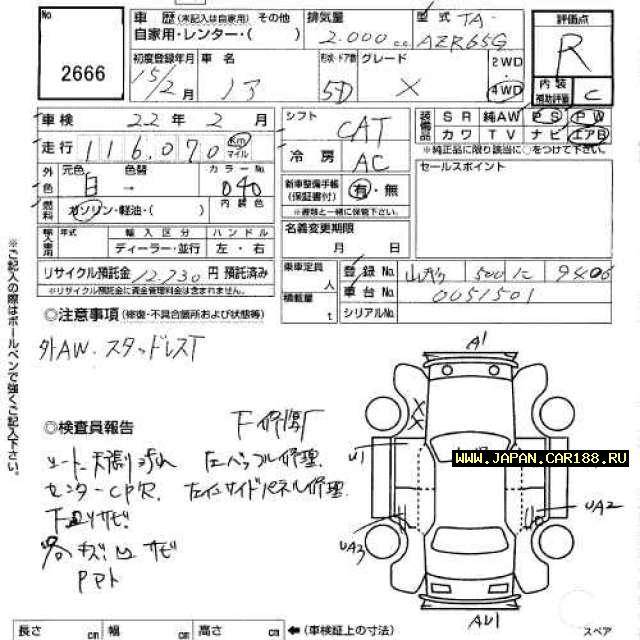 No
2666
車歴 (未記入は自家用) その他
自家用・レンター・( )
排気量
2.000 cc
型式 TA-
AZR65G
評価点
R
初度登録年月
15/2月
車名
ノア
形状・ドア数
5D
グレード
X
2WD
4WD
内装
補助評価
C
車検 22年 2月
走行 116,070 Km
マイル
シフト
CAT
冷房
AC
装備品
SR 純AW PS PW
カワ TV ナビ エアB
※純正品に限り該当に○をつけて下さい。
外色
元色 色替 カラーNo.
白 → 040
燃料
ガソリン・軽油・( )
内装色
新車整備手帳
(保証書付)
有・無
※書類と一緒に保管下さい。
セールスポイント
輸入車用
年式
輸入区分 ハンドル
ディーラー・並行 左・右
名義変更期限
月 日
リサイクル預託金 12,730 円 預託済み
※リサイクル預託金に資金管理料金は含まれません。
乗車定員
人
積載量
t
登録No. 500 9406
車台No. 0051501
シリアルNo.
※ご記入の際はボールペンで強くご記入下さい。
◎注意事項 (修復・不具合箇所および状態等)
外AW. スタッドレスT
◎検査員報告
シート天張り汚れ
センターCPR
下廻りサビ
各キズ凹サビ
左インサイドパネル修理
A1
U1
UA2
UA3
AU1
WWW.JAPAN.CAR188.RU
長さ cm 幅 cm 高さ cm ←(車検証上の寸法)
スペア